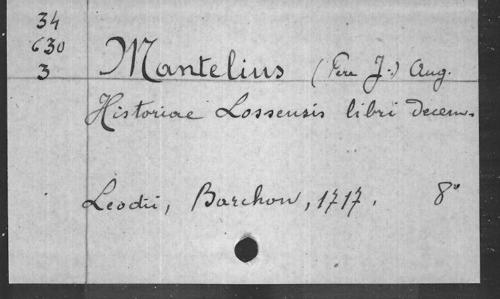 34
630
3
Mantelius (Père J.) Aug.
Historiae Lossensis libri decem.
Leodii, Barchon, 1717. 8°